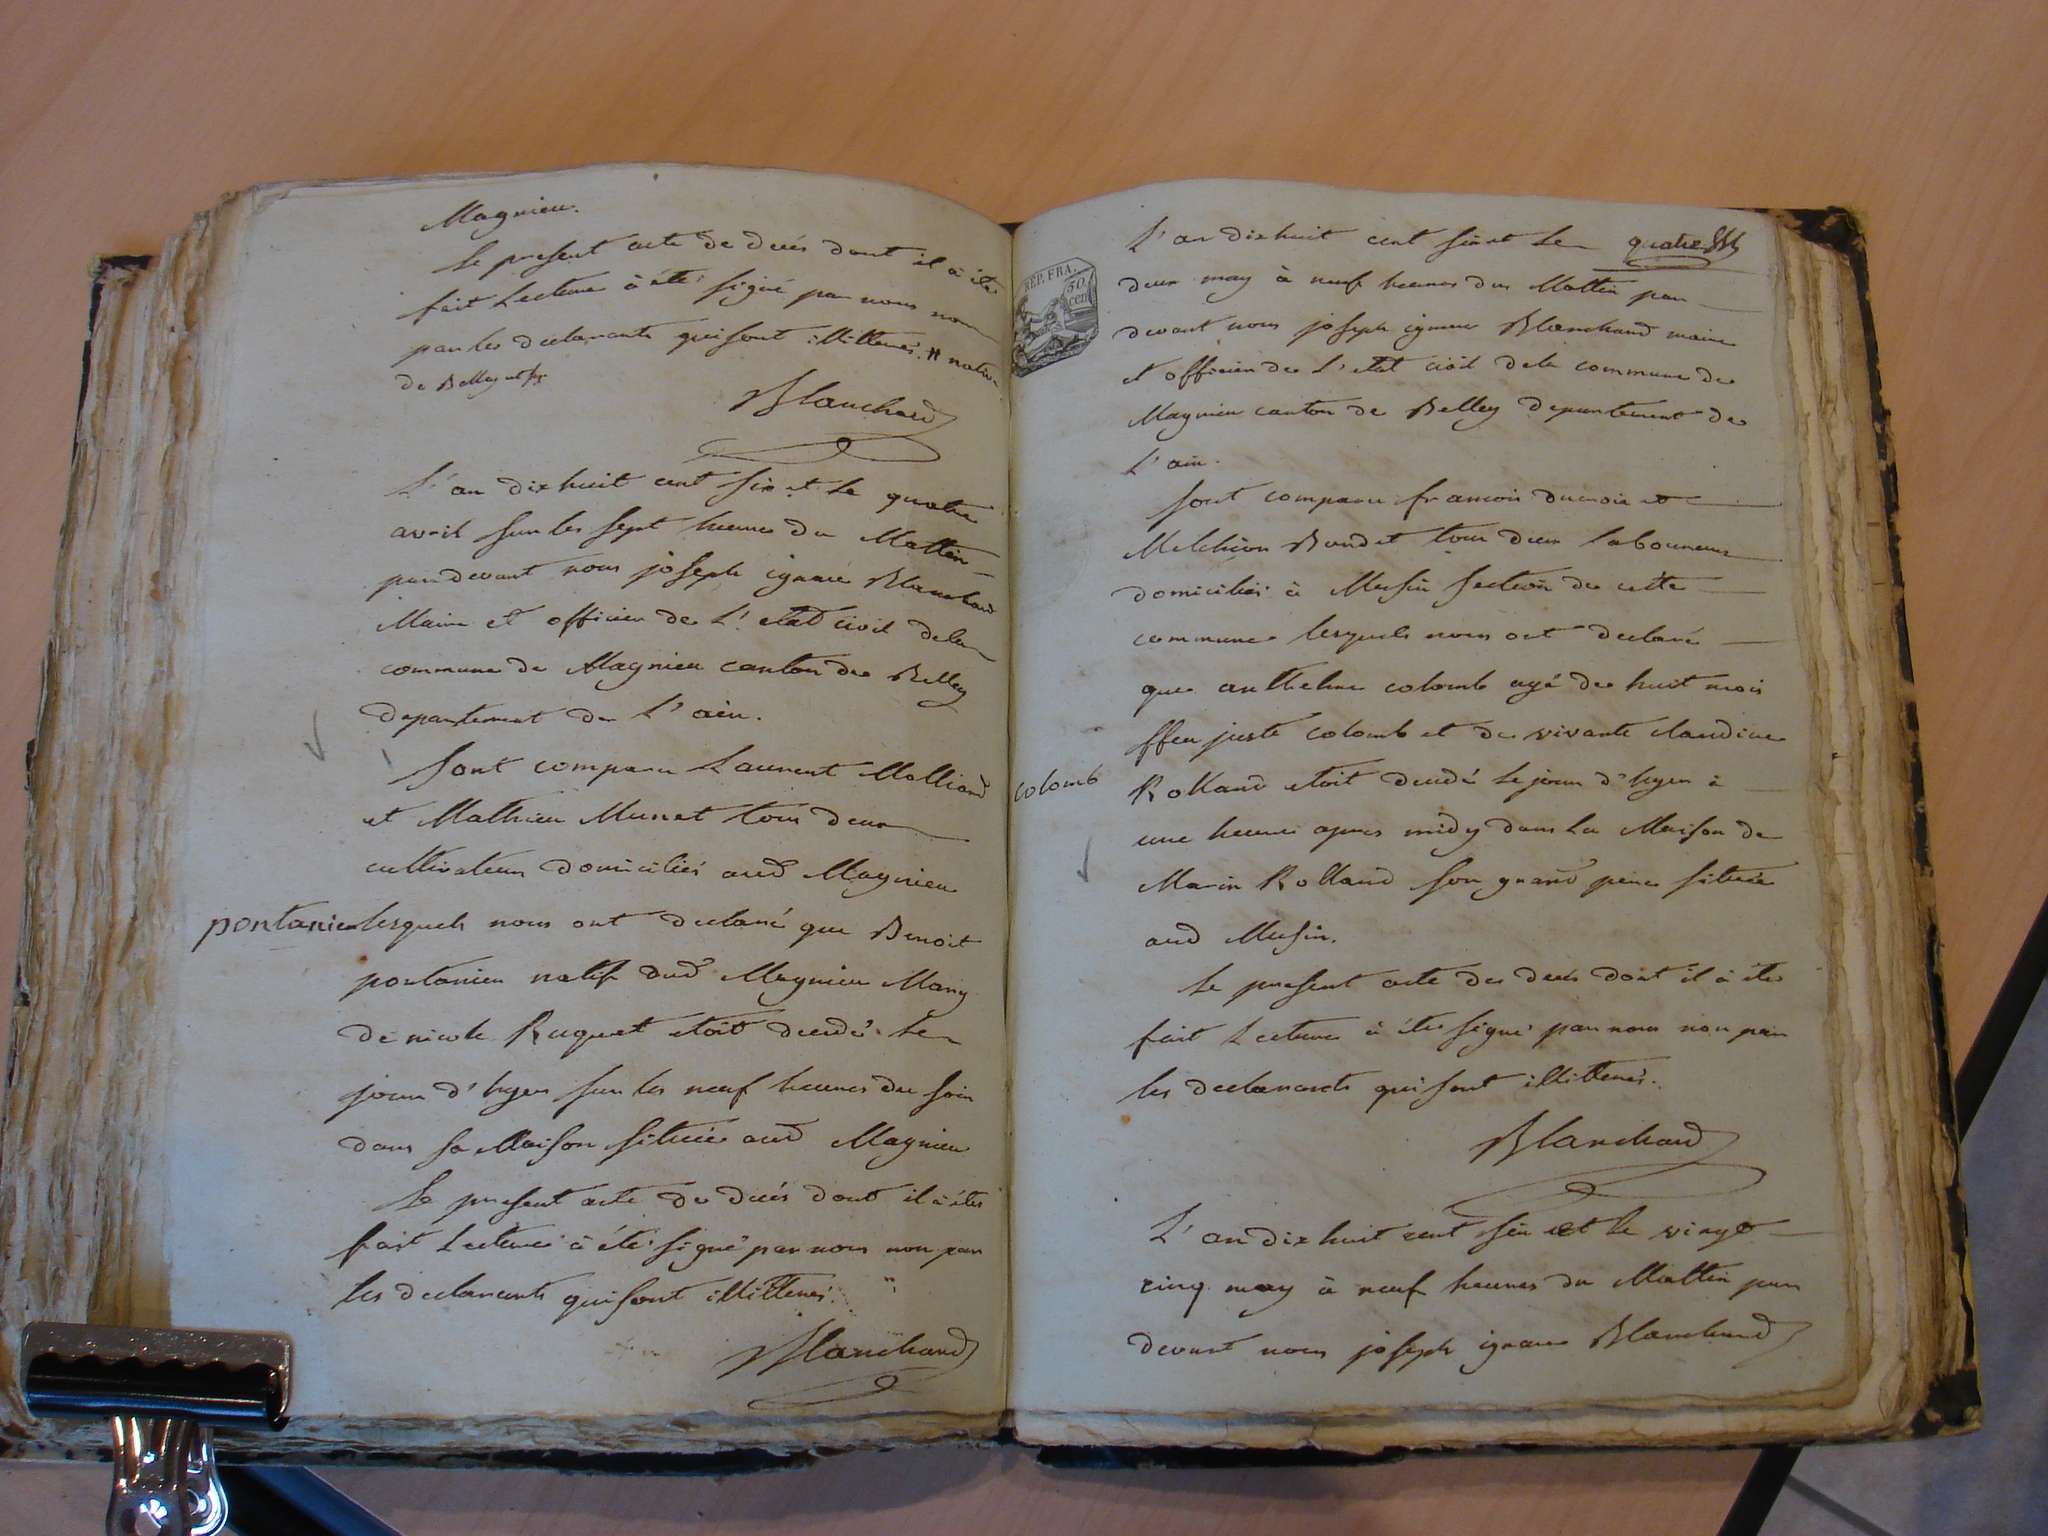 Magnieu.
Le present acte de decés dont il à été
fait Lecture à été signé par nous non
par les declarants qui sont illitterés. # natif
de Belley
Blanchard
L'an dix huit cent six et le quatre
avril sur les sept heures du Mattin
pardevant nous joseph ignace Blanchard
Maire et officier de L'etat civil dela
commune de Magnieu canton de Belley
departement de L'ain.
Sont comparu Laurent Molliard
et Mathieu Munet tous deux
cultivateurs domiciliés aud Magnieu
pontanieu lesquels nous ont declaré que Benoit
pontanieu natif dud Magnieu Mary
de nicole Ruguet etoit decedé Le
jour d'hyer sur les neuf heures du soir
dans sa Maison située aud Magnieu
Le present acte de decés dont il à été
fait Lecture à été signé par nous non par
les declarants qui sont illitterés.
Blanchard
REP. FRA.
50
cen
L'an dix huit cent six et Le quatre
deux may à neuf heures du Mattin par
devant nous joseph ignace Blanchard maire
et officier de L'etat civil dela commune de
Magnieu canton de Belley departement de
L'ain.
sont comparu francois ducroix et
Melchior Bondet tous deux laboureurs
domiciliés à Musin section de cette
commune lesquels nous ont declaré
que anthelme colomb agé de huit mois
ffeu juste colomb et de vivante claudine
colomb Rolland etoit decedé Le jour d'hyer à
une heure apres midy dans La Maison de
Marin Rolland son grand pere située
aud Musin.
Le present acte de decés dont il à été
fait Lecture à été signé par nous non par
les declarants qui sont illitterés.
Blanchard
L'an dix huit cent six et le vingt
cinq may à neuf heures du Mattin par
devant nous joseph ignace Blanchard